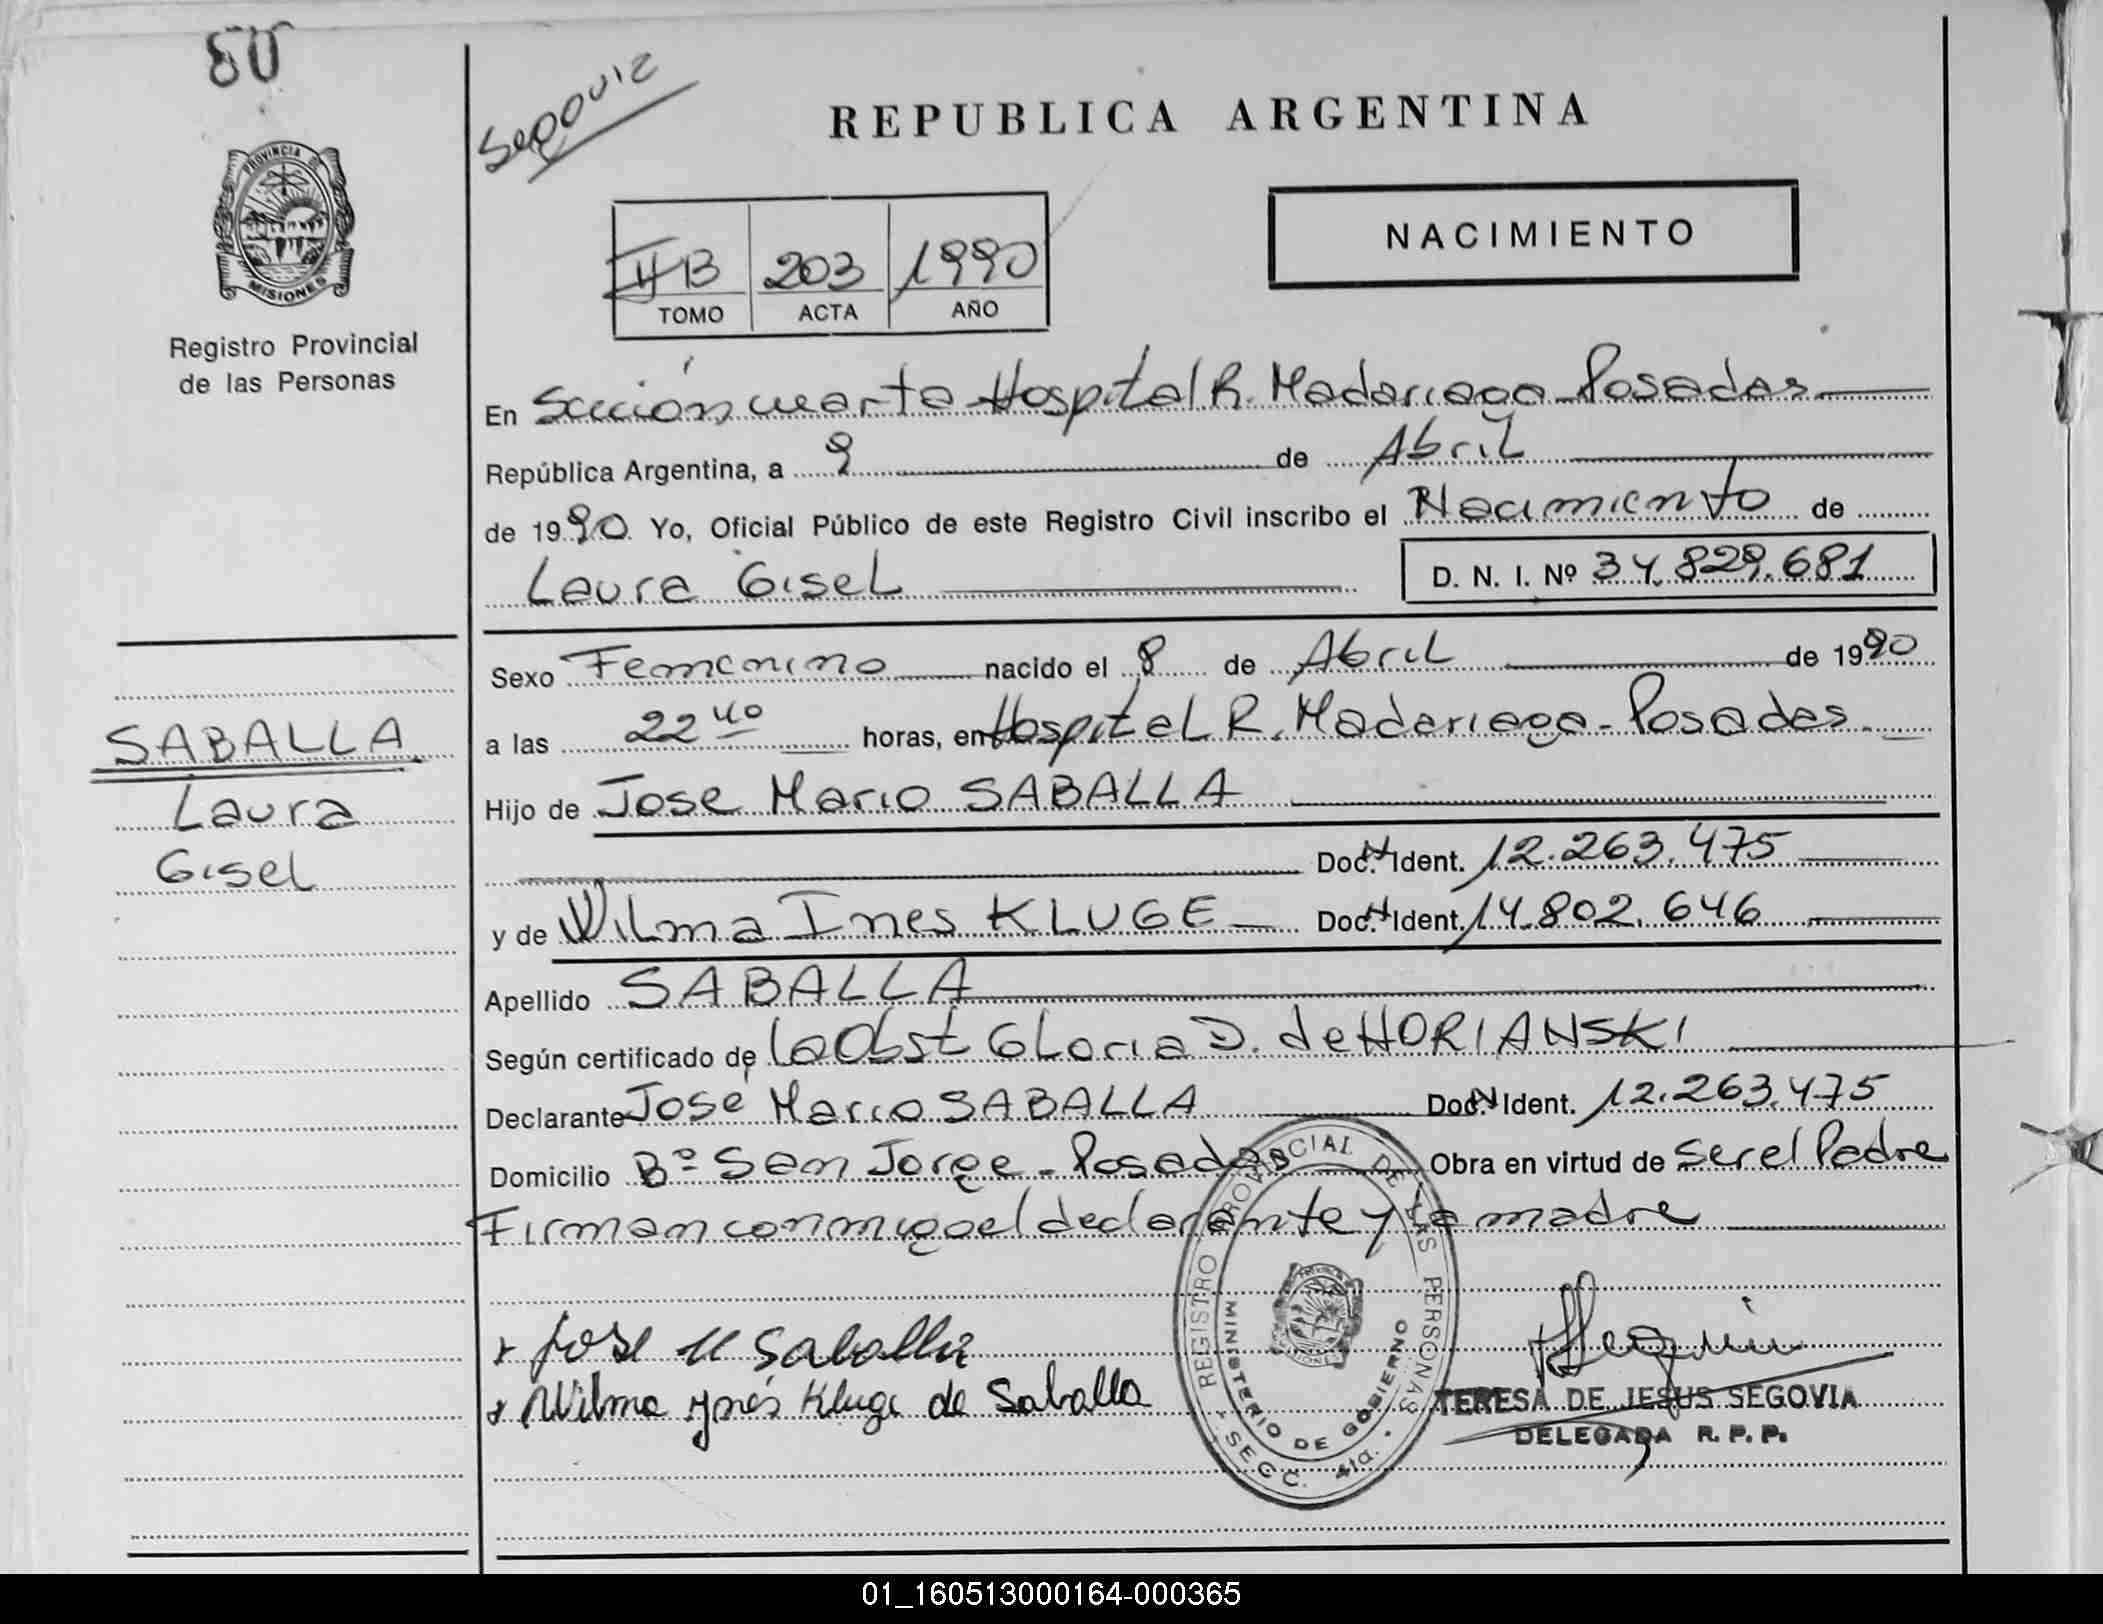 80
Segovia
REPUBLICA ARGENTINA
PROVINCIA D
MISIONES
Registro Provincial
de las Personas
NACIMIENTO
II B 203 1990
TOMO ACTA AÑO
En Sección cuarta Hospital R. Madariaga - Posadas
República Argentina, a 9 de Abril
de 1990 Yo, Oficial Público de este Registro Civil inscribo el Nacimiento de
Laura Gisel D. N. I. Nº 34.829.681
Sexo Femenino nacido el 8 de Abril de 1990
a las 22 40 horas, en Hospital R. Madariaga - Posadas
Hijo de Jose Mario SABALLA
Doc. N Ident. 12.263.475
y de Wilma Ines KLUGE Doc. N Ident. 14.802.646
Apellido SABALLA
Según certificado de la Obst Gloria D. de HORIANSKI
Declarante Jose Mario SABALLA Doc. N Ident. 12.263.475
Domicilio Bº San Jorge - Posadas Obra en virtud de ser el Padre
Firman conmigo el declarante y la madre
SABALLA
Laura
Gisel
Jose M Saballa
Wilma Ynés Kluge de Saballa
REGISTRO PROVINCIAL DE LAS PERSONAS
MINISTERIO DE GOBIERNO
SECC. 4ta.
TERESA DE JESUS SEGOVIA
DELEGADA R. P. P.
01_160513000164-000365